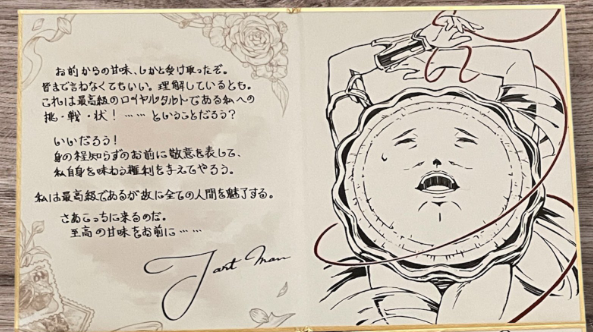 お前からの甘味、しかと受け取ったぞ。
皆まで言わなくてもいい。理解しているとも。
これは最高級のロイヤルタルトである私への
挑・戦・状！……ということだろう？
いいだろう！
身の程知らずのお前に敬意を表して、
私自身を味わう権利を与えてやろう。
私は最高級であるが故に全ての人間を魅了する。
さあこっちに来るのだ。
至高の甘味をお前に……
Tart Man